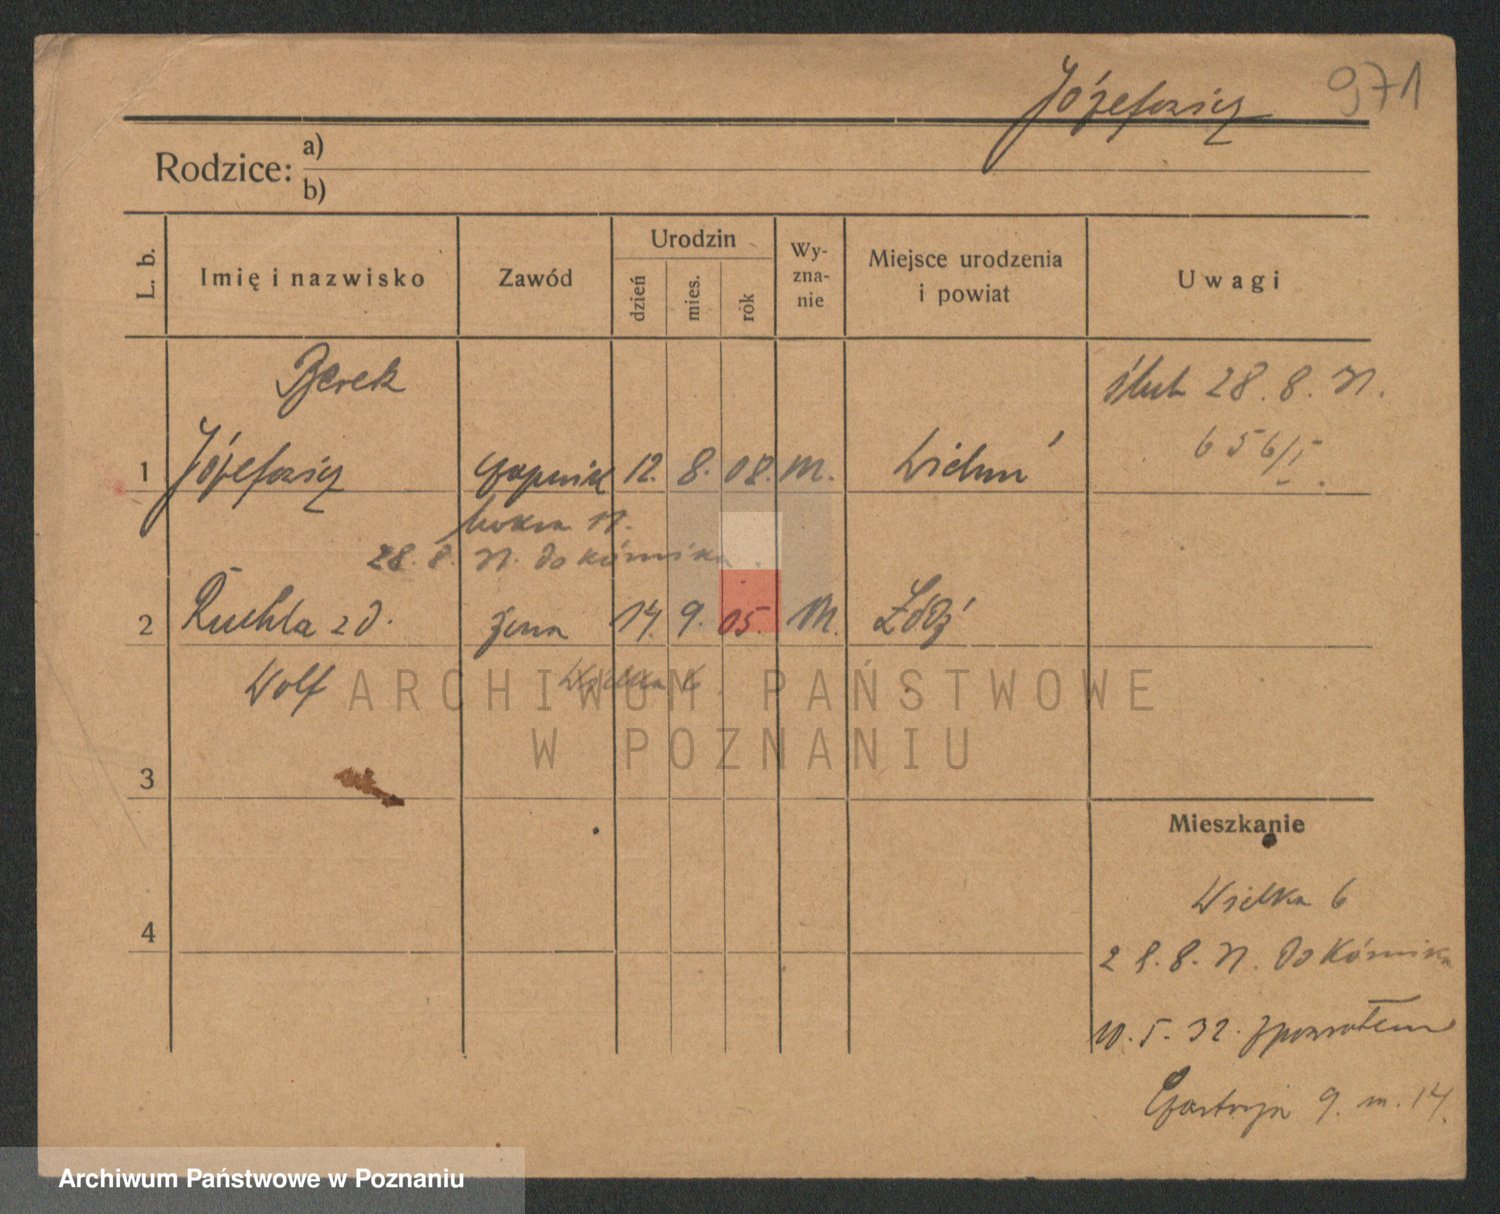 Józefowicz 971
Rodzice: a)
b)
L. b.
Imię i nazwisko
Zawód
Urodzin
dzień
mies.
rok
Wy-
zna-
nie
Miejsce urodzenia
i powiat
Uwagi
Berek
ślub 28. 8. 31.
656/I.
1 Józefowicz czapnik 12. 8. 08. m. Wieluń
Mokra 11.
28. 8. 31. do Kórnika
2 Ruchla zd. żona 14. 9. 05. M. Łódź
Wolf Wielka 6.
ARCHIWUM PAŃSTWOWE
W POZNANIU
3
Mieszkanie
Wielka 6
4
28. 8. 31. do Kórnika
10. 5. 32. z powrotem
9. m. 14.
Archiwum Państwowe w Poznaniu